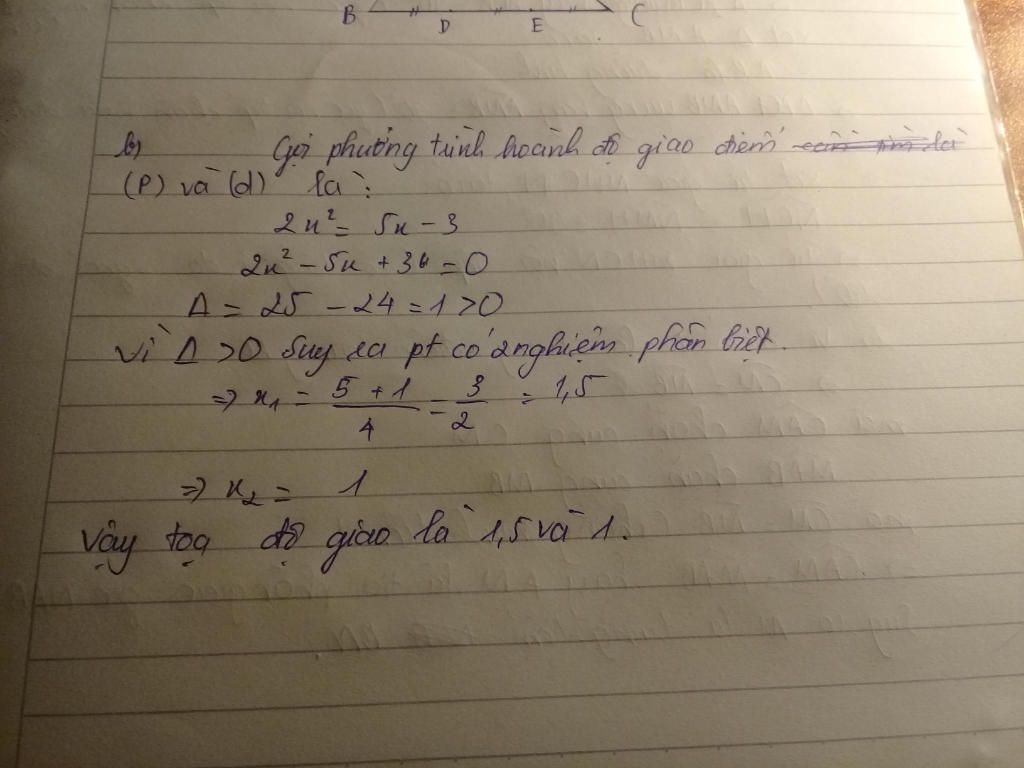 B D E C
b) Gọi phương trình hoành độ giao điểm là
(P) và (d) là:
2x² = 5x - 3
2x² - 5x + 3 = 0
Δ = 25 - 24 = 1 > 0
Vì Δ > 0 Suy ra pt có 2 nghiệm phân biệt.
=> x₁ = \frac{5 + 1}{4} = \frac{3}{2} = 1,5
=> x₂ = 1
Vậy toạ độ giao là 1,5 và 1.